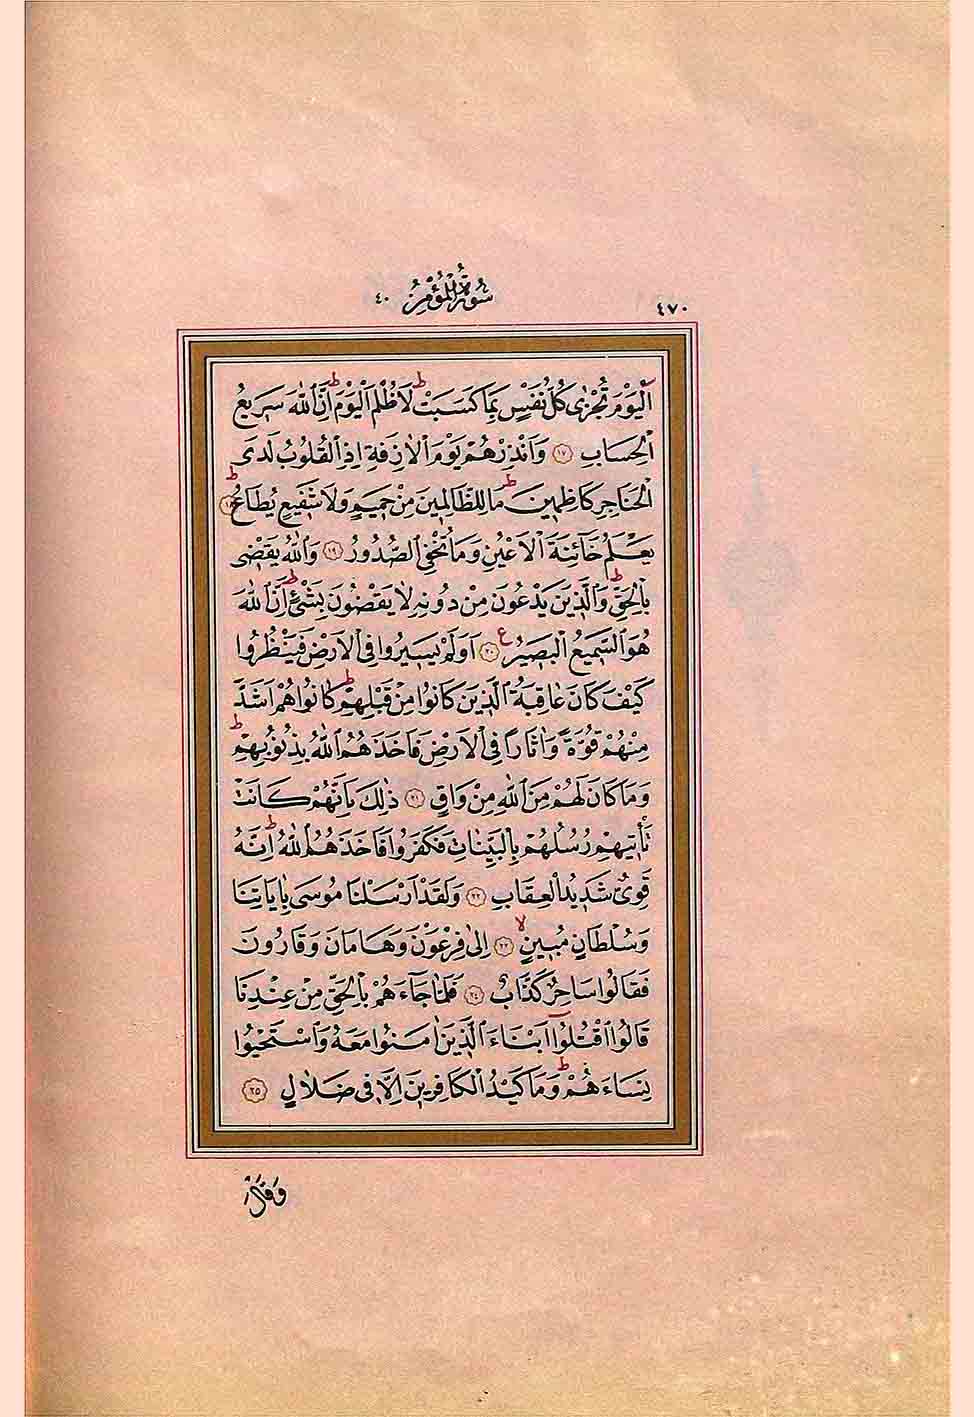 ٤٧٠
سُورَةُ الْمُؤْمِنِ ٤٠
اَلْيَوْمَ تُجْزٰى كُلُّ نَفْسٍ بِمَا كَسَبَتْ ۜ لَا ظُلْمَ الْيَوْمَ ۜ اِنَّ اللّٰهَ سَرِيعُ
الْحِسَابِ ﴿١٧﴾ وَاَنْذِرْهُمْ يَوْمَ الْاٰزِفَةِ اِذِ الْقُلُوبُ لَدَى
الْحَنَاجِرِ كَاظِمِينَ ط مَا لِلظَّالِمِينَ مِنْ حَمِيمٍ وَلَا شَفِيعٍ يُطَاعُ ط ﴿١٨﴾
يَعْلَمُ خَآئِنَةَ الْاَعْيُنِ وَمَا تُخْفِي الصُّدُورُ ﴿١٩﴾ وَاللّٰهُ يَقْضِي
بِالْحَقِّ ط وَالَّذِينَ يَدْعُونَ مِنْ دُونِهِ لَا يَقْضُونَ بِشَيْءٍ ط اِنَّ اللّٰهَ
هُوَ السَّمِيعُ الْبَصِيرُ ع ﴿٢٠﴾ اَوَلَمْ يَسِيرُوا فِي الْاَرْضِ فَيَنْظُرُوا
كَيْفَ كَانَ عَاقِبَةُ الَّذِينَ كَانُوا مِنْ قَبْلِهِمْ ط كَانُوا هُمْ اَشَدَّ
مِنْهُمْ قُوَّةً وَاٰثَارًا فِي الْاَرْضِ فَاَخَذَهُمُ اللّٰهُ بِذُنُوبِهِمْ ط
وَمَا كَانَ لَهُمْ مِنَ اللّٰهِ مِنْ وَاقٍ ﴿٢١﴾ ذٰلِكَ بِاَنَّهُمْ كَانَتْ
تَأْتِيهِمْ رُسُلُهُمْ بِالْبَيِّنَاتِ فَكَفَرُوا فَاَخَذَهُمُ اللّٰهُ ط اِنَّهُ
قَوِيٌّ شَدِيدُ الْعِقَابِ ﴿٢٢﴾ وَلَقَدْ اَرْسَلْنَا مُوسٰى بِاٰيَاتِنَا
وَسُلْطَانٍ مُبِينٍ لا ﴿٢٣﴾ اِلٰى فِرْعَوْنَ وَهَامَانَ وَقَارُونَ
فَقَالُوا سَاحِرٌ كَذَّابٌ ﴿٢٤﴾ فَلَمَّا جَآءَهُمْ بِالْحَقِّ مِنْ عِنْدِنَا
قَالُوا اقْتُلُوا اَبْنَاءَ الَّذِينَ اٰمَنُوا مَعَهُ وَاسْتَحْيُوا
نِسَاءَهُمْ ط وَمَا كَيْدُ الْكَافِرِينَ اِلَّا فِي ضَلَالٍ ﴿٢٥﴾
وَقَالَ